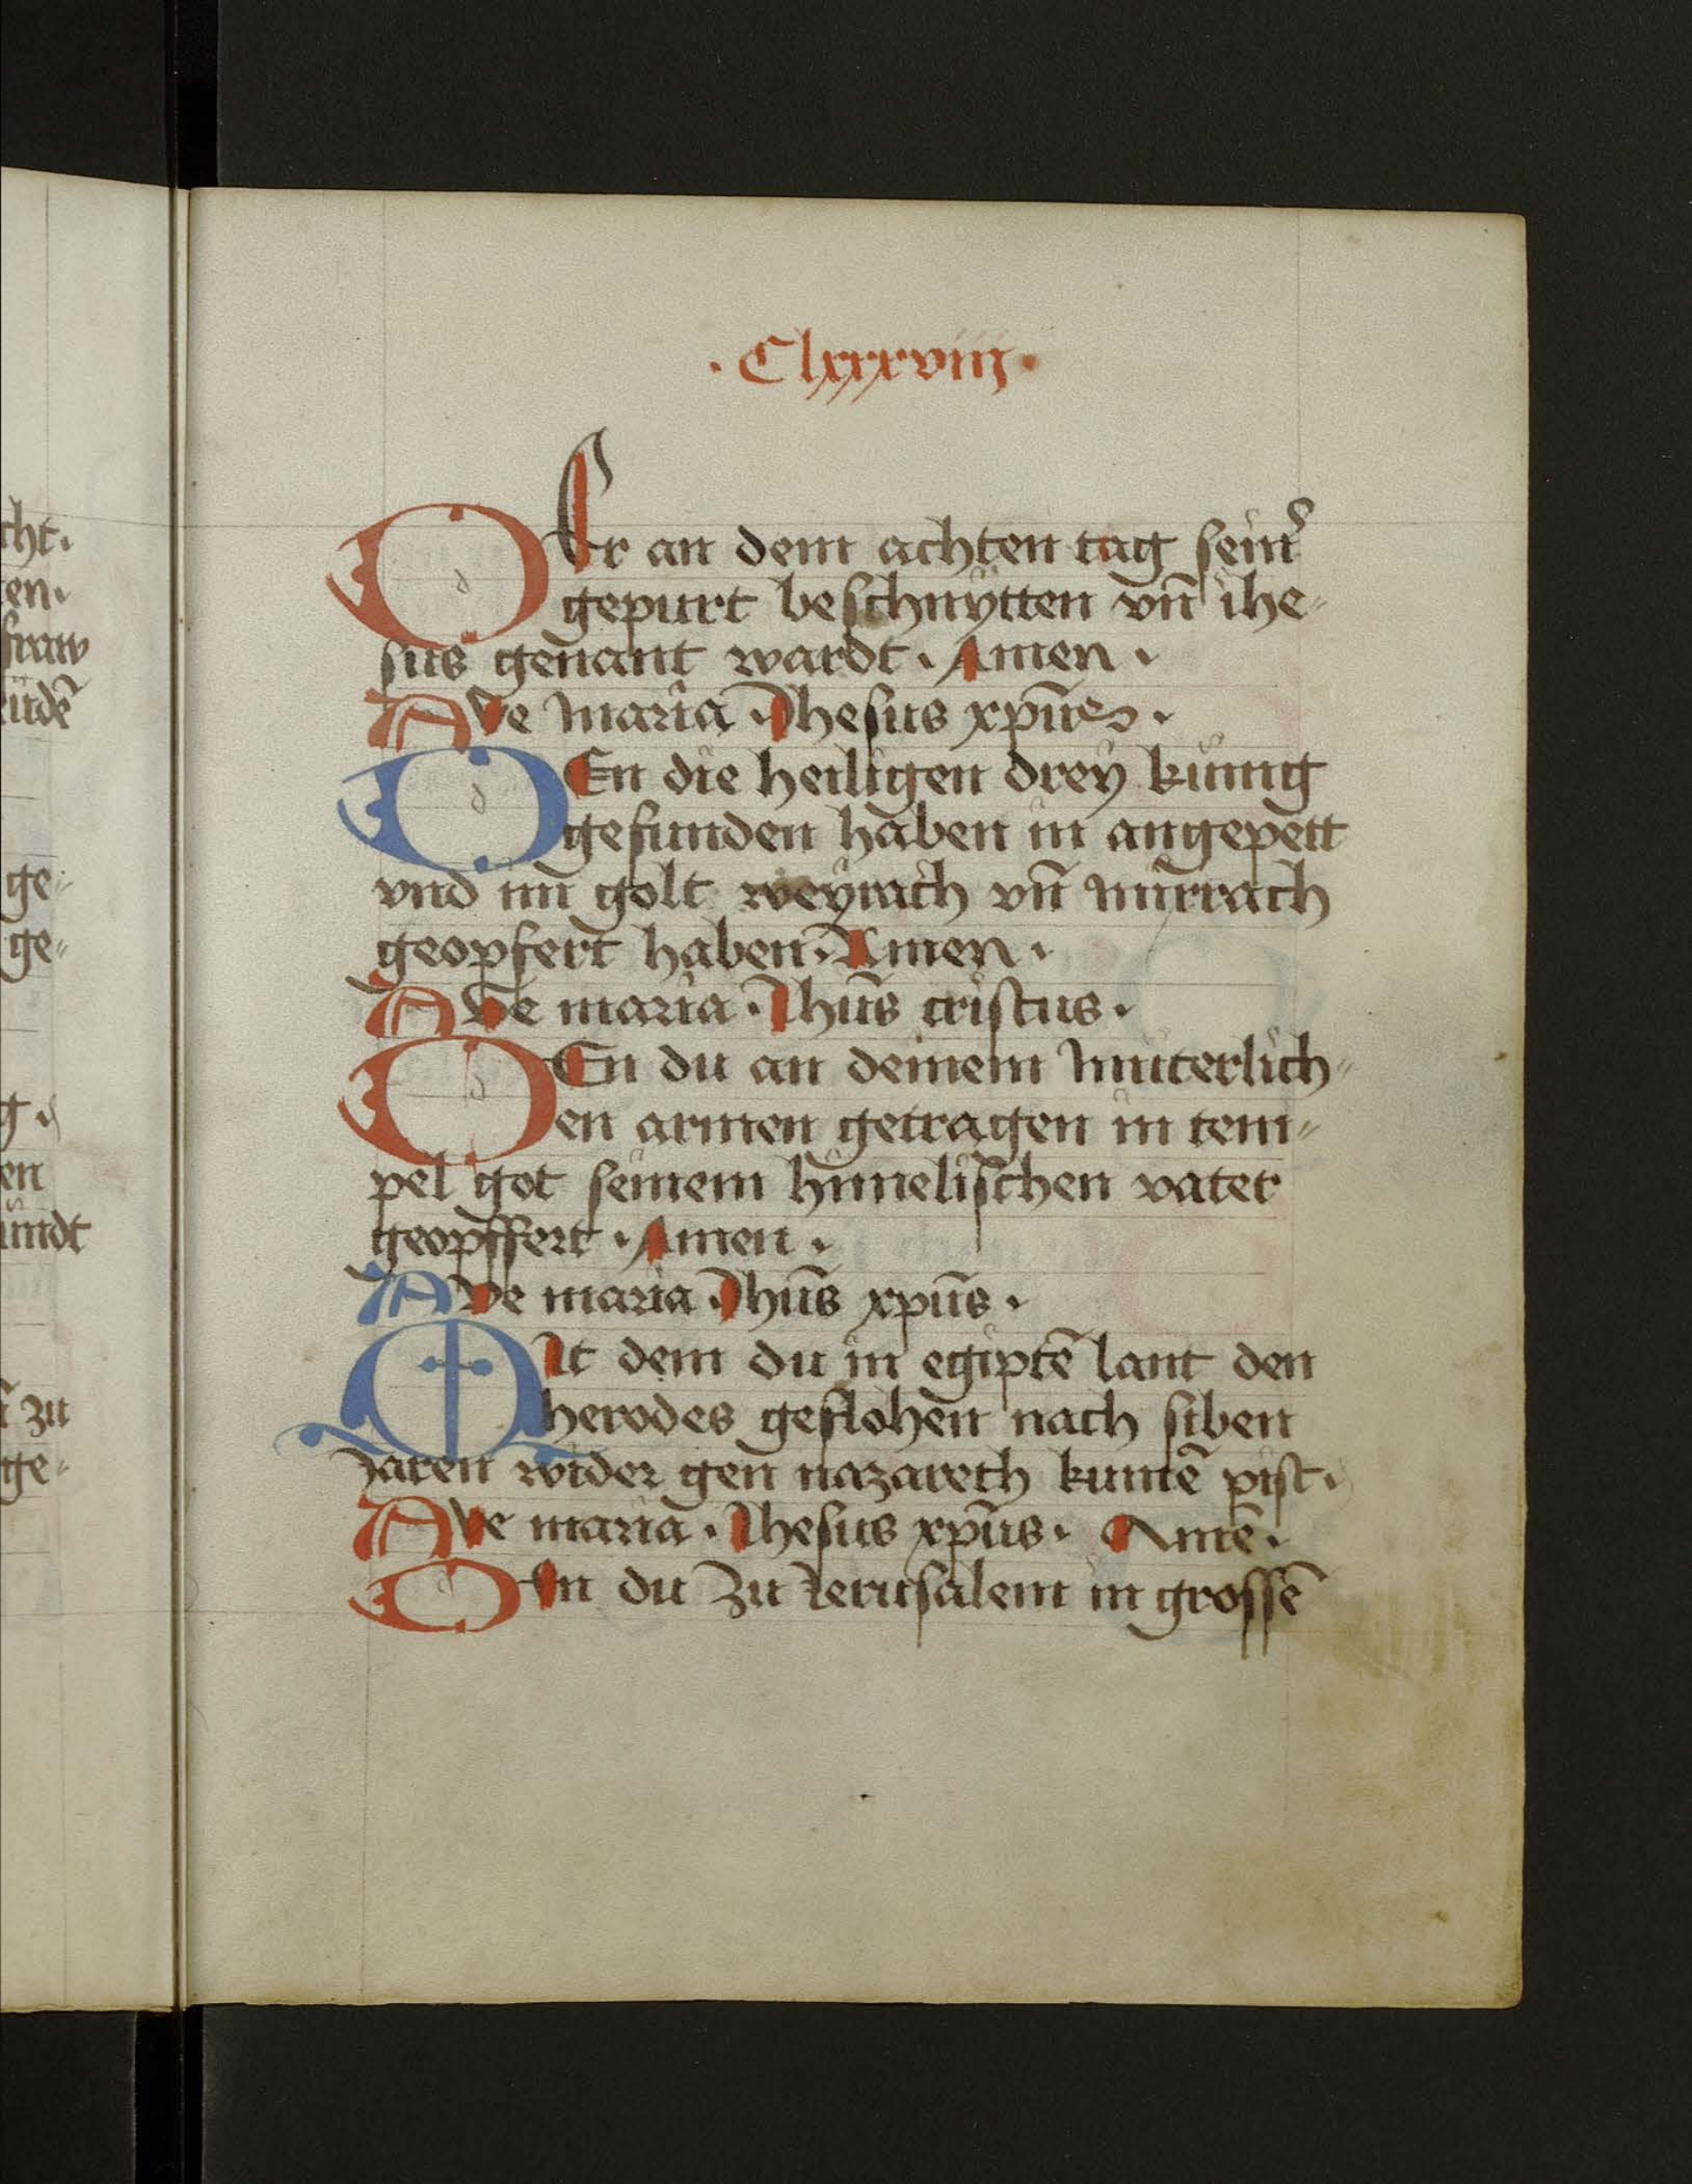 cht.
en.
fraw
ge
ge
g.
en
zu
ge
· Clxxxviij ·
DEr an dem achten tag sein̄
gepurt beschnÿtten vn̄ ihe
sus genant wardt · Amen ·
AVe maria · Jhesus xp̄us ·
DEn die heiligen drey künig
gefunden haben in angepett
vnd im̄ golt weyrach vn̄ mirrach
geopfert haben · Amen ·
AVe maria · Jhūs cristus ·
DEn du an deinem muterlich
en armen getragen in tem
pel got seinem him̄elischen vater
geopffert · Amen ·
AVe maria Jhūs xpūs ·
MIt dem du in egiptē lant den
herodes geflohen nach siben
Jaren wider gen nazareth kumē pist ·
AVe maria · Jhesus xpūs · Amē ·
DEn du zu Jerusalem in grossē